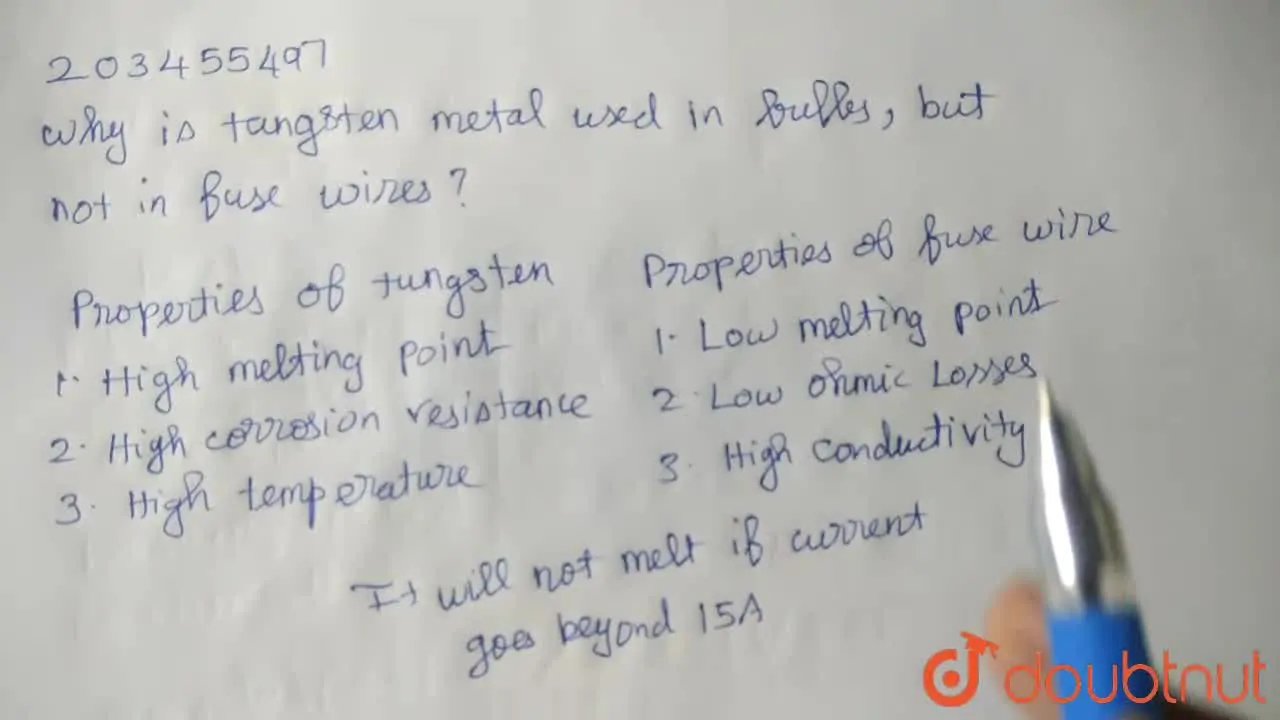 203455497
why is tangsten metal used in bulbs, but
not in fuse wires?
Properties of tungsten
1. High melting point
2. High corrosion resistance
3. High temperature
Properties of fuse wire
1. Low melting point
2. Low ohmic Losses
3. High conductivity
It will not melt if current
goes beyond 15A
doubtnut